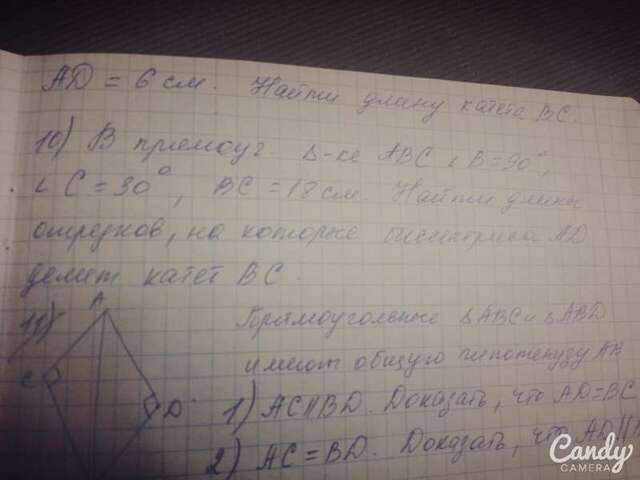 AD = 6 см. Найти длину катета BC.
10) В прямоуг. Δ-ке ABC ∠B=90°,
∠C=30°, BC=18 см. Найти длины
отрезков, на которые биссектриса AD
делит катет BC.
11)
Прямоугольные ΔABC и ΔABD
имеют общую гипотенузу AB
1) AC||BD. Доказать, что AD=BC
2) AC=BD. Доказать, что AD||
A
C
D
Candy
CAMERA